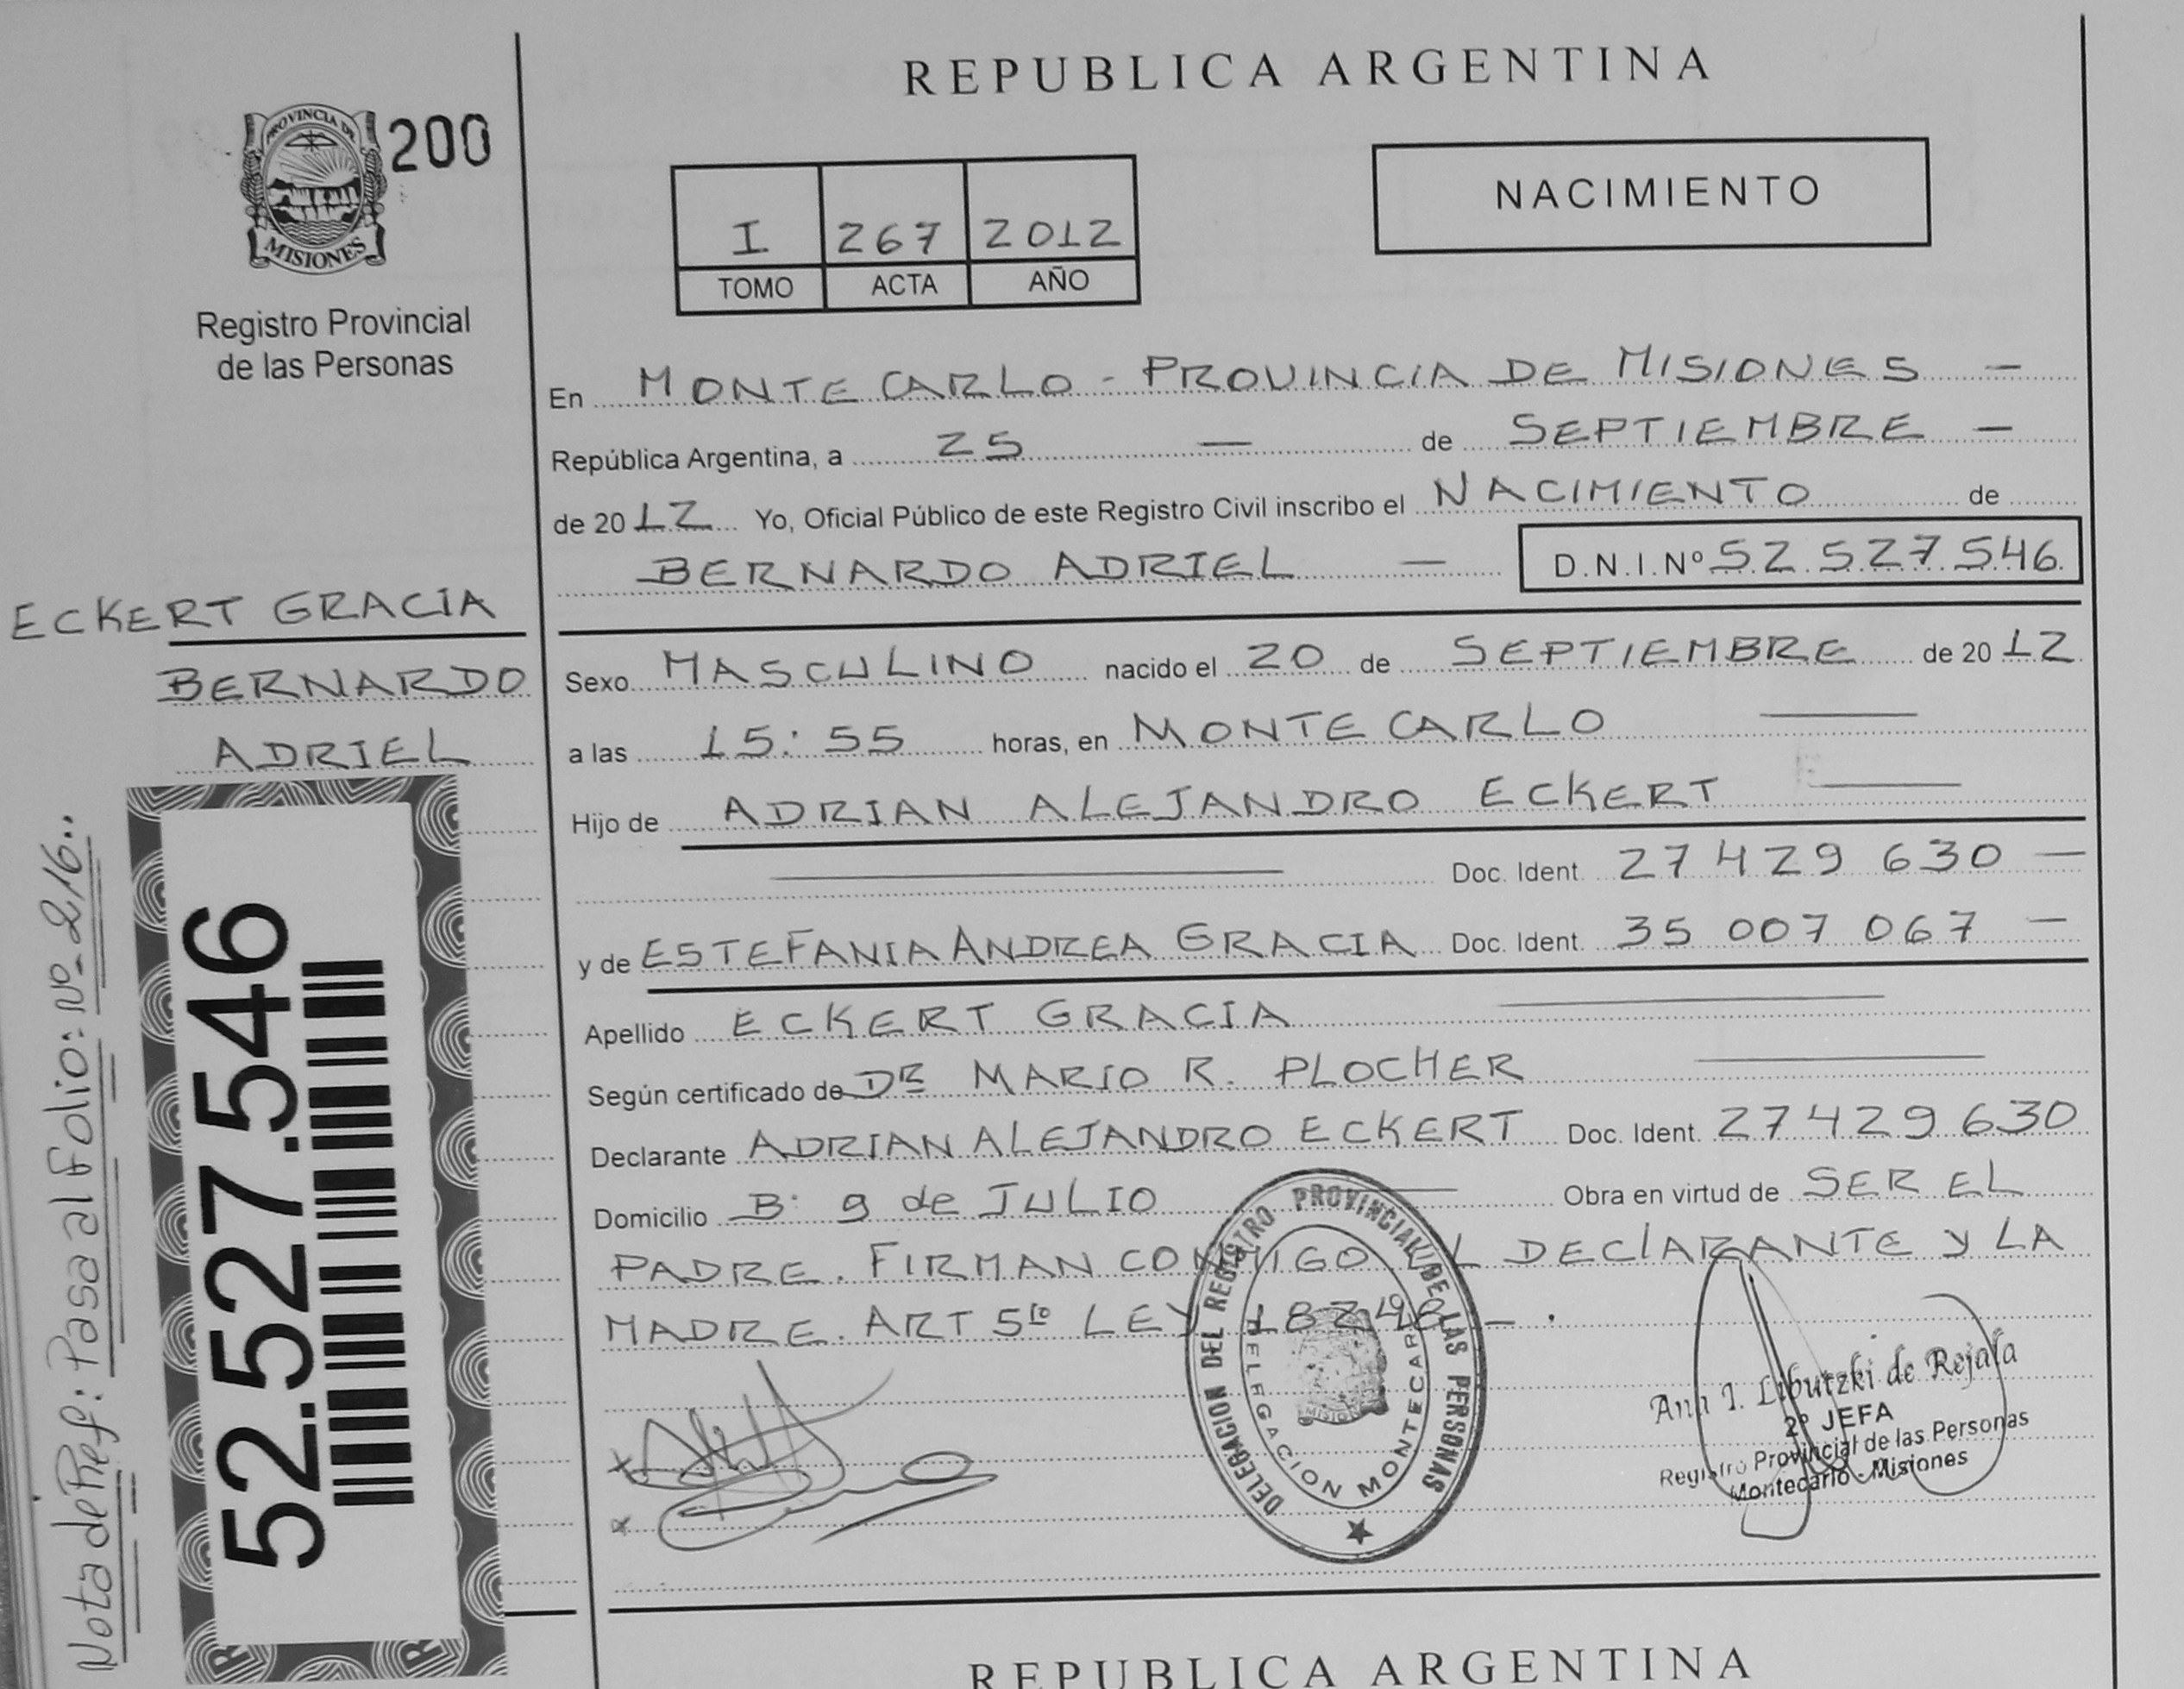 REPUBLICA ARGENTINA
PROVINCIA DE
MISIONES
200
Registro Provincial
de las Personas
I 267 2012
TOMO ACTA AÑO
NACIMIENTO
En MONTECARLO - PROVINCIA DE MISIONES —
República Argentina, a 25 — de SEPTIEMBRE —
de 2012 Yo, Oficial Público de este Registro Civil inscribo el NACIMIENTO de
BERNARDO ADRIEL — D.N.I.Nº 52.527.546
ECKERT GRACIA
BERNARDO
ADRIEL
Sexo MASCULINO nacido el 20 de SEPTIEMBRE de 2012
a las 15:55 horas, en MONTECARLO —
Hijo de ADRIAN ALEJANDRO ECKERT —
— Doc. Ident. 27 429 630 —
y de ESTEFANIA ANDREA GRACIA Doc. Ident. 35 007 067 —
Apellido ECKERT GRACIA —
Según certificado de DR MARIO R. PLOCHER —
Declarante ADRIAN ALEJANDRO ECKERT Doc. Ident. 27429630
Domicilio Bº 9 de JULIO — Obra en virtud de SER EL
PADRE. FIRMAN CONMIGO EL DECLARANTE y LA
MADRE. ART 5to LEY 18248 — .
52.527.546
Nota de Ref: Pasa al Folio: Nº 216..
DELEGACION DEL REGISTRO PROVINCIAL DE LAS PERSONAS
DELEGACION MONTECARLO
MISIONES
Ana I. Libutzki de Rejala
2º JEFA
Registro Provincial de las Personas
Montecarlo - Misiones
REPUBLICA ARGENTINA